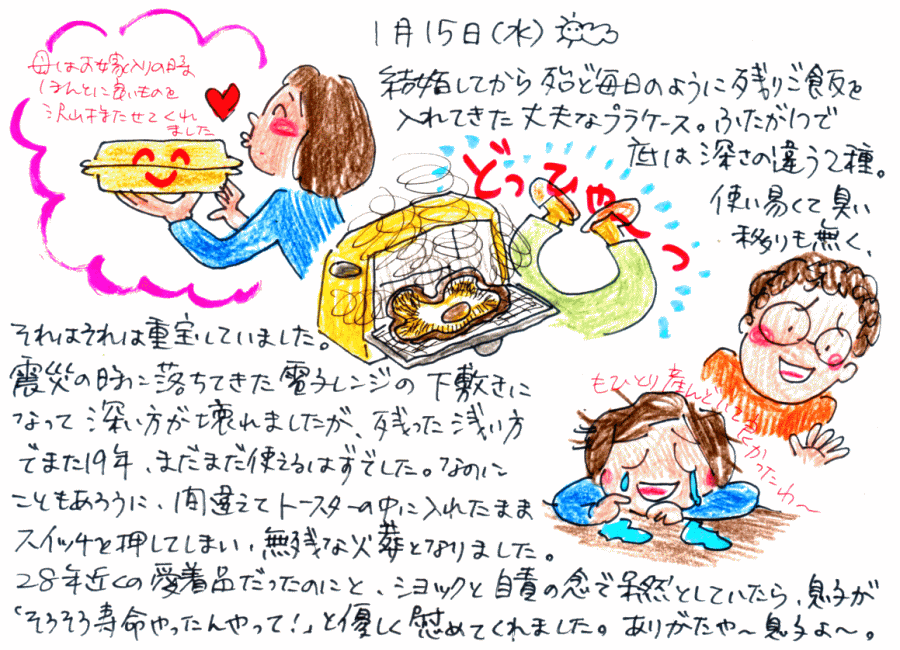 1月15日(水)
母はお嫁入りの時
ほんとに良いものを
沢山持たせてくれ
ました
結婚してから殆ど毎日のように残りご飯を
入れてきた丈夫なプラケース。ふたが1つで
底は深さの違う2種。
使い易くて臭い
移りも無く、
どっひゃ〜っ
それはそれは重宝していました。
震災の時に落ちてきた電子レンジの下敷きに
なって深い方が壊れましたが、残った浅い方
でまた19年、まだまだ使えるはずでした。なのに
こともあろうに、間違えてトースターの中に入れたまま
スイッチを押してしまい、無残な火葬となりました。
28年近くの愛着品だったのにと、ショックと自責の念で呆然としていたら、息子が
「そろそろ寿命やったんやって!」と優しく慰めてくれました。ありがたや〜息子よ〜。
もひとり産んどいてよかったわ〜